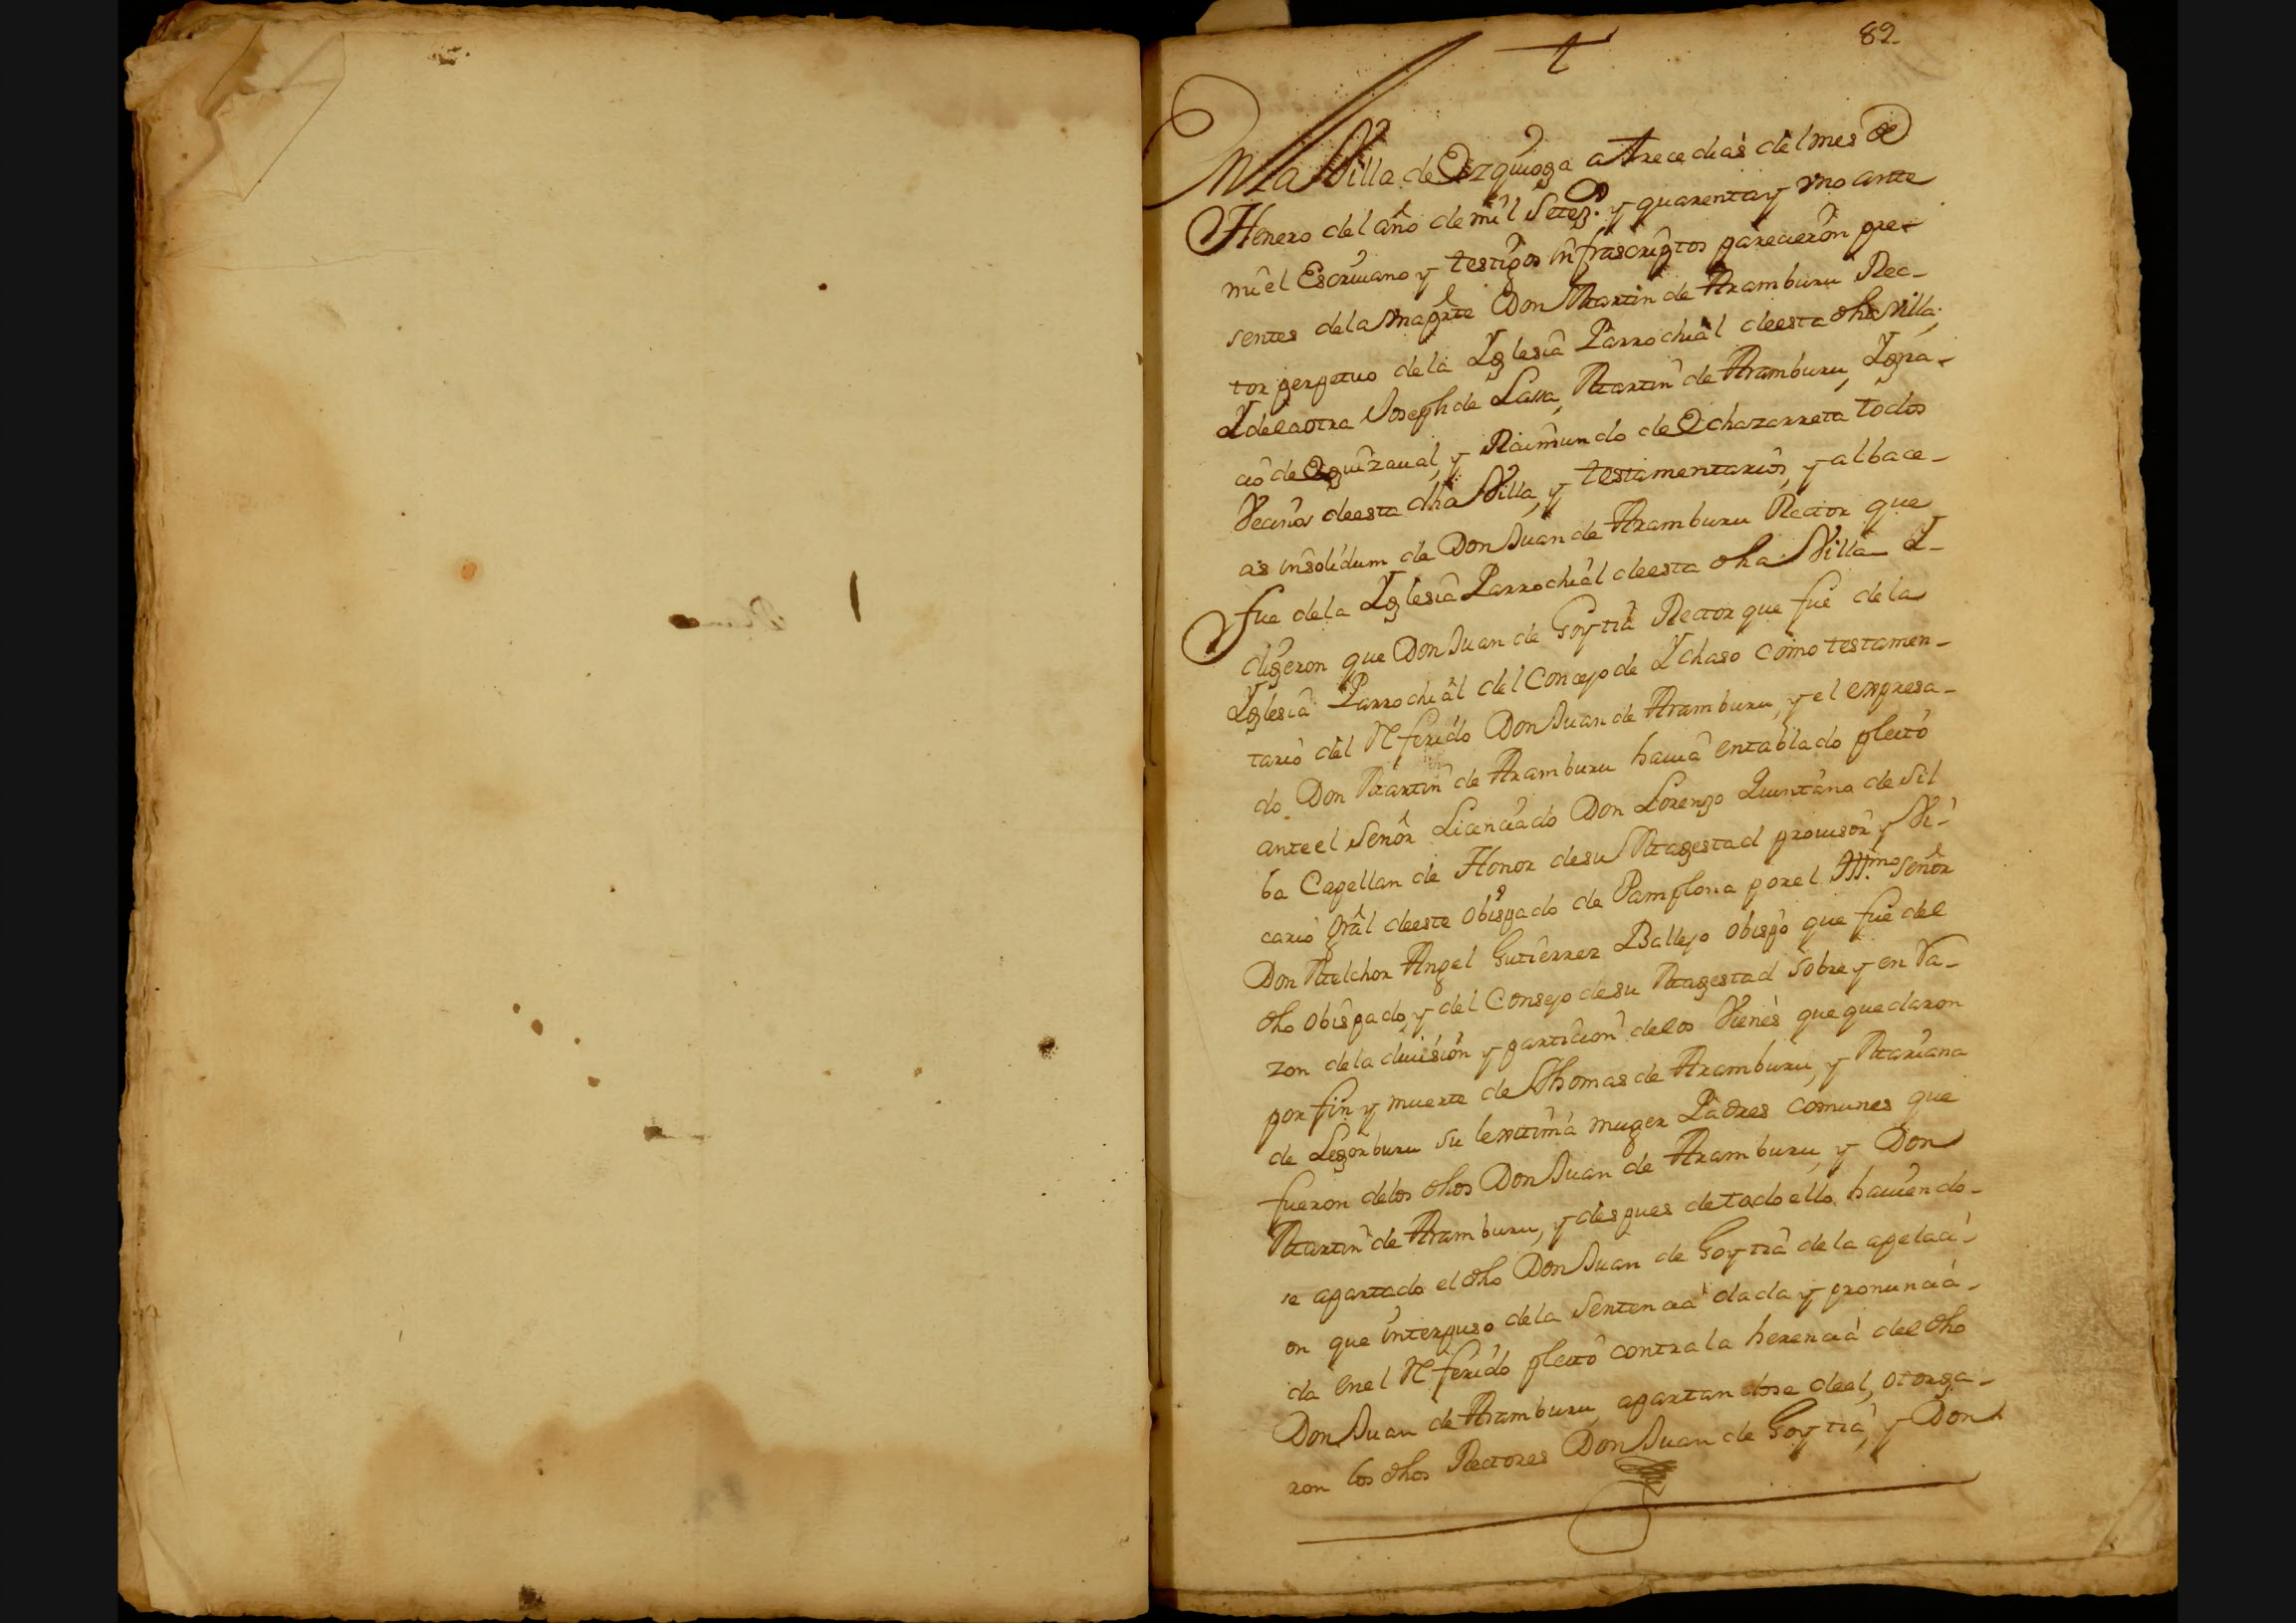 82
En la Villa de Ezquioga a trece dias del mes de
Henero del año de mil Setez.os y quarenta y vno ante
mi el Escriuano y testigos infrascriptos parecieron pre-
sentes de la vna parte Don Martin de Aramburu Rec-
tor perpetuo de la Yglesia Parrochial de esta dha Villa,
Y de la otra Joseph de Lasa, Martin de Aramburu, Ygna-
cio de Eguizaual, y Raimundo de Ochazarreta todos
Vecinos de esta dha Villa, y testamentarios, y albace-
as insolidum de Don Juan de Aramburu Rector que
fue de la Yglesia Parrochial de esta dha Villa Y-
digeron que Don Juan de Goytia Rector que fue de la
Yglesia Parrochial del Concejo de Ychaso como testamen-
tario del Referido Don Juan de Aramburu, y el expresa-
do Don Martin de Aramburu hauia entablado pleito
ante el Señor Licenciado Don Lorenzo Quintana de Sil
ba Capellan de Honor de su Magestad prouisor y Vi-
cario Gral de este obispado de Pamplona por el Ill.mo Señor
Don Melchor Angel Gutierrez Ballejo obispo que fue del
dho obispado, y del Consejo de su Magestad sobre y en Ra-
zon de la diuision y particion de los Vienes que quedaron
por fin y muerte de Thomas de Aramburu, y Mariana
de Legorburu su lexitima muger Padres comunes que
fueron de los dhos Don Juan de Aramburu, y Don
Martin de Aramburu, y despues de todo ello hauiendo-
se apartado el dho Don Juan de Goytia de la apelaci-
on que interpuso de la Sentencia dada y pronuncia-
da en el Referido pleito contra la herencia del dho
Don Juan de Aramburu apartandose de el, otorga-
ron los dhos Rectores Don Juan de Goytia, y Don